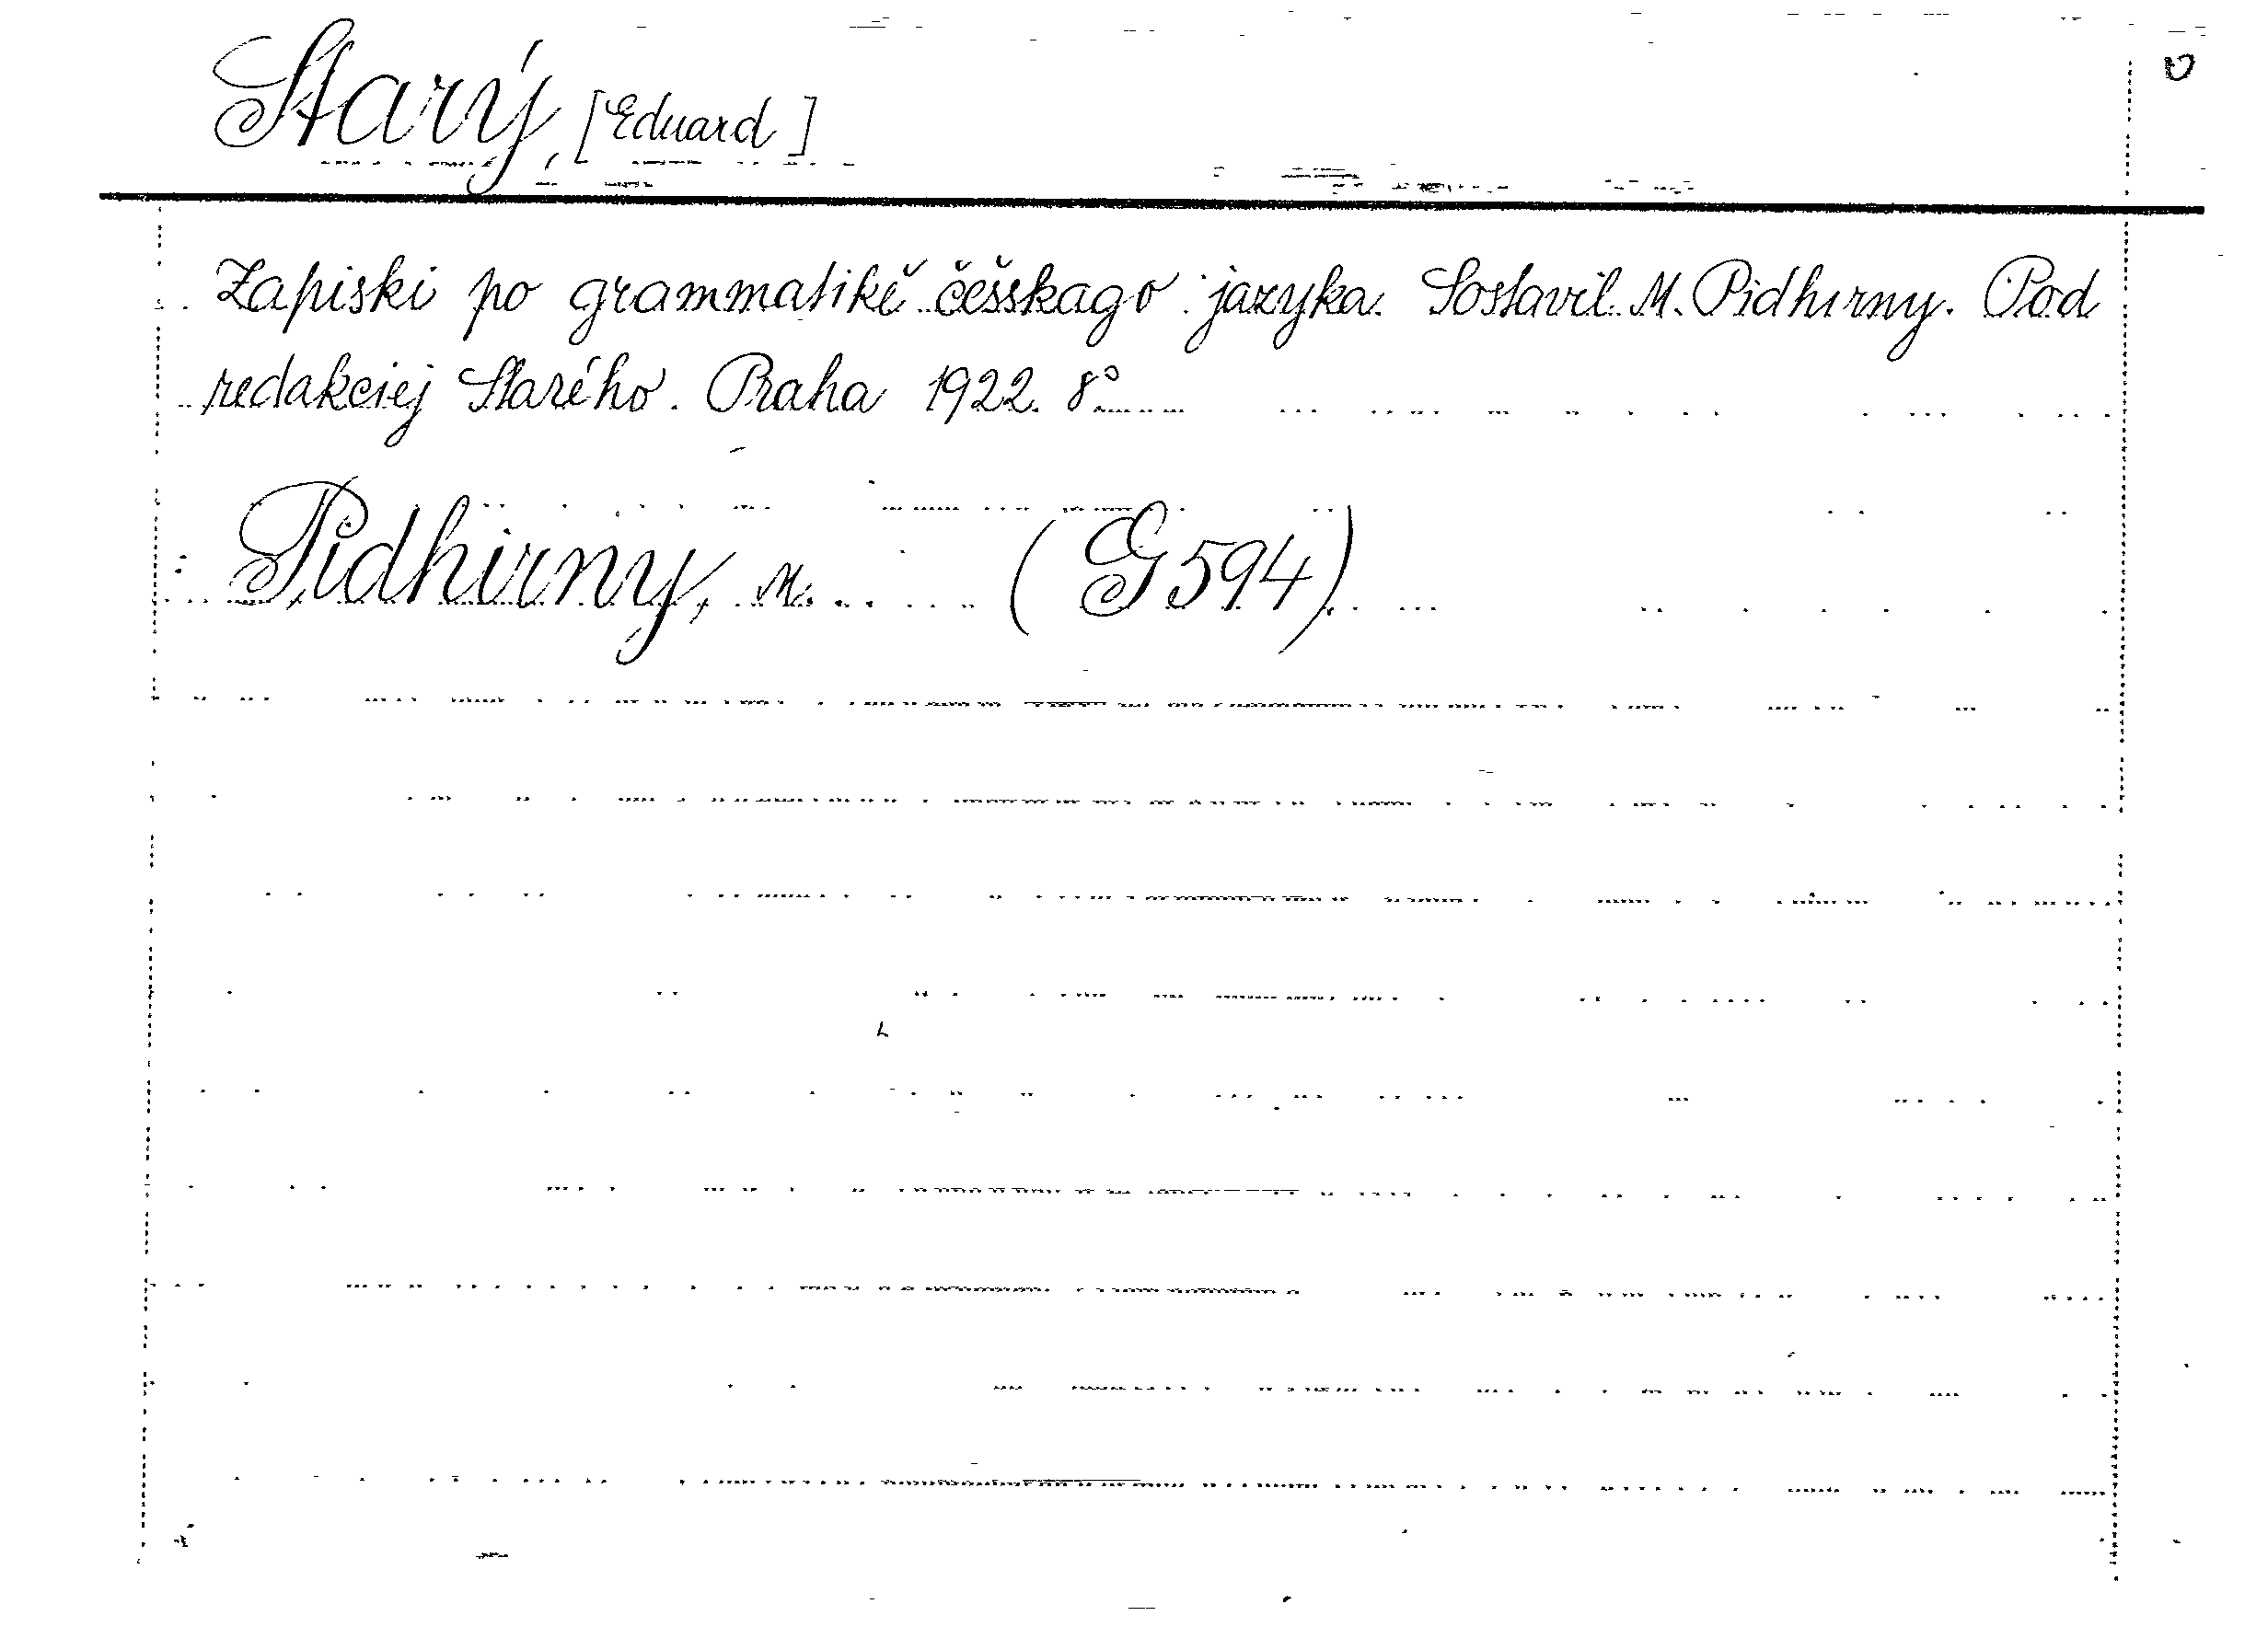 Starý, [Eduard]
Zapiski po grammatikě češskago jazyka. Sostavil M. Pidhirny. Pod
redakciej Starého. Praha 1922. 8°
Pidhirny, M. (G 594)